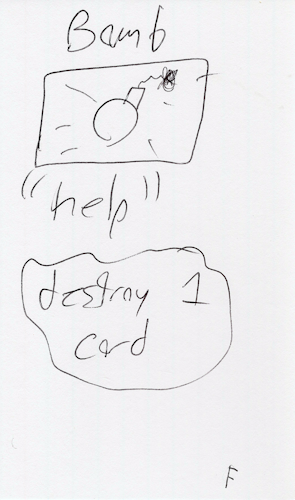 Bamb
"help"
destroy 1
card
F